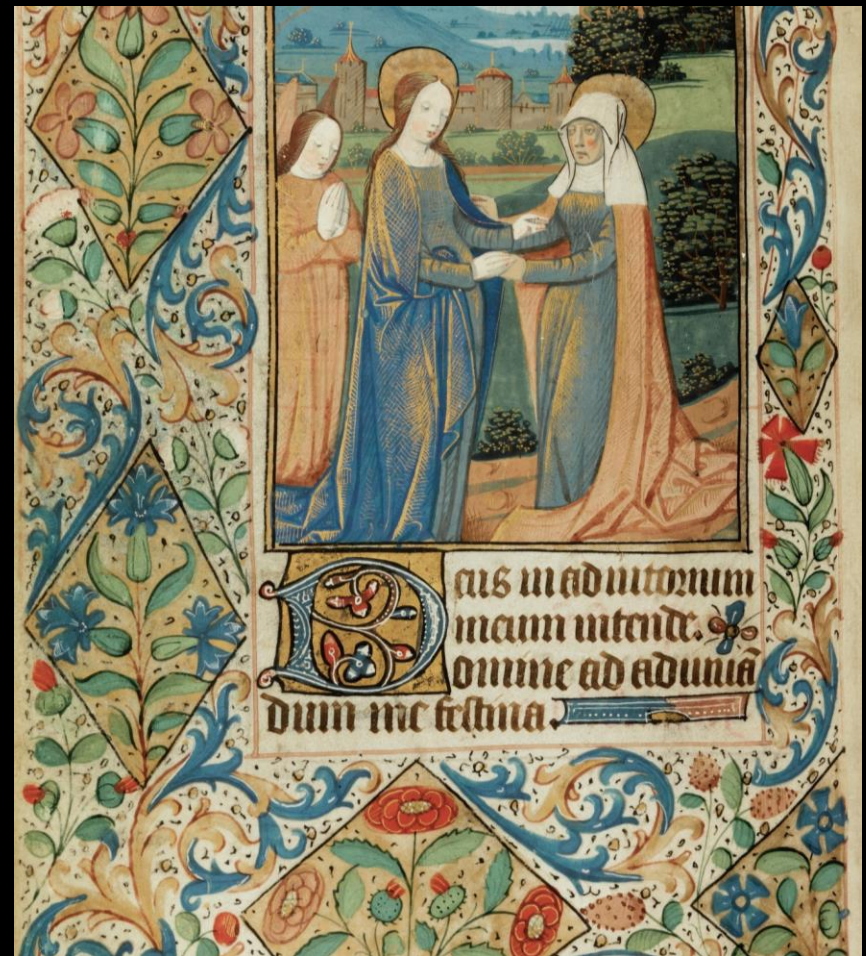 Deus in adiutorium
meum intende.
Domine ad adiuuiā
dum me festina.